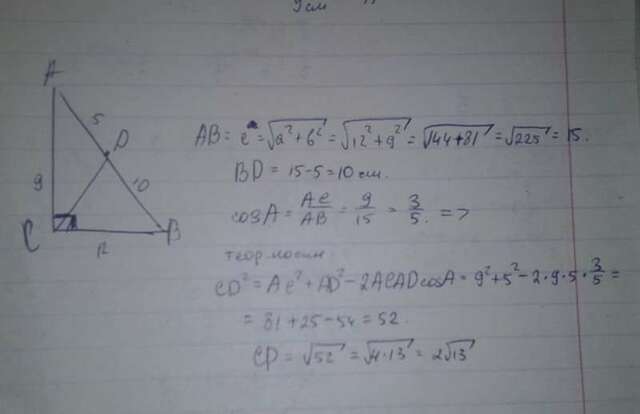 9 см
A
5
D
9
10
C
12
B
AB = c = √(a²+b²) = √(12²+9²) = √(144+81) = √225 = 15.
BD = 15-5=10 см.
cosA = AC/AB = 9/15 = 3/5. =>
теор. косин.
CD² = AC² + AD² - 2AC AD cosA = 9²+5²-2·9·5·3/5 =
= 81+25-54=52.
CD = √52 = √(4·13) = 2√13